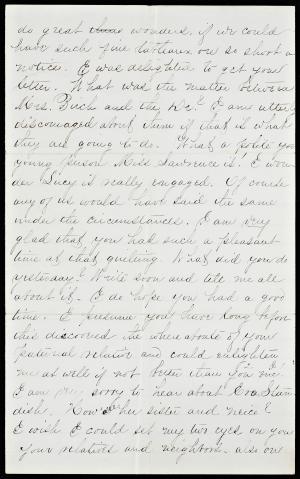 do great wonders, if we could
have such fine tableaux on so short a
notice. I was delighted to get your
letter. What was the matter between
Mrs. and the Dr.? I am utterly
discouraged about them if that is what
they are going to do. What a polite
young person Miss Lawrence is! I won-
der Lucy is really engaged. Of course
any of us would have said the same
under the circumstances. I am very
glad that you had such a pleasant
time at that quilting. What did you do
yesterday? Write soon and tell me all
about it. I do hope you had a good
time. I presume you have long before
this discovered the whereabouts of your
relative and could enlighten
me as well if not better than
I am sorry to hear about Eva Stan-
dish. How are her sister and niece?
I wish I could set my two eyes on you
your relatives and neighbors. also one